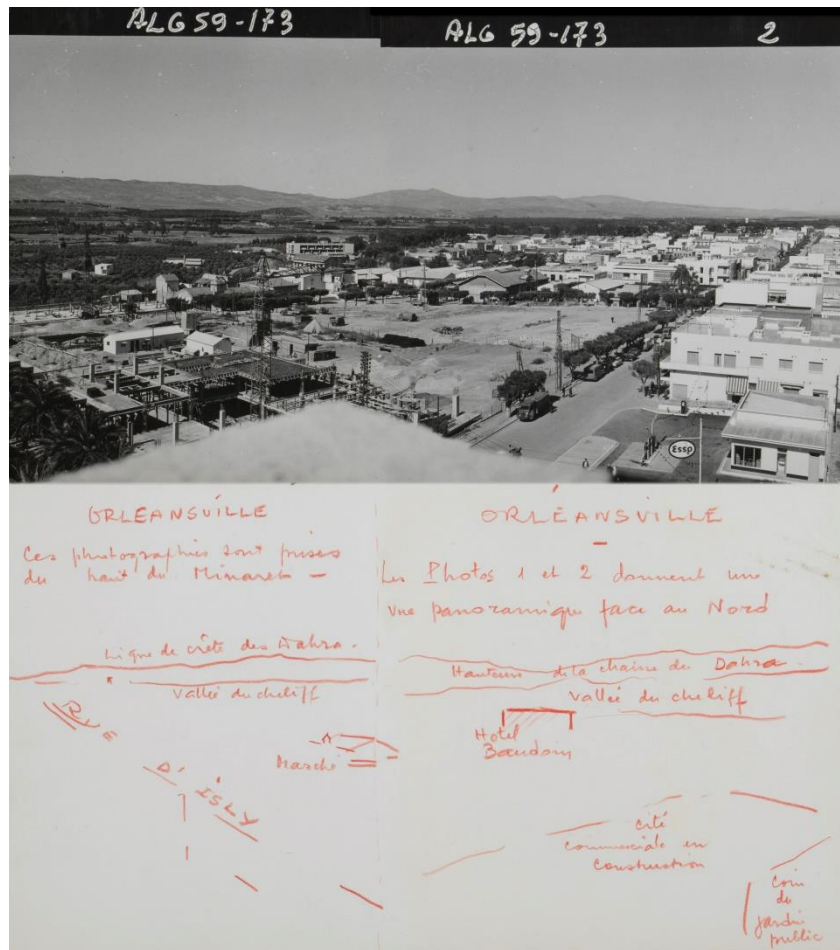 ALG 59-173
ALG 59-173 2
Esso
ORLEANSVILLE
Ces photographies sont prises
du haut du Minaret -
Ligne de crête des Dahra.
Vallée du cheliff
RUE
D'ISLY
Marché
ORLÉANSVILLE
-
Les Photos 1 et 2 donnent une
vue panoramique face au Nord
Hauteurs de la chaine du Dahra.
Vallée du cheliff
Hotel
Baudoin
cité
commerciale en
construction
Coin
du
jardin
public